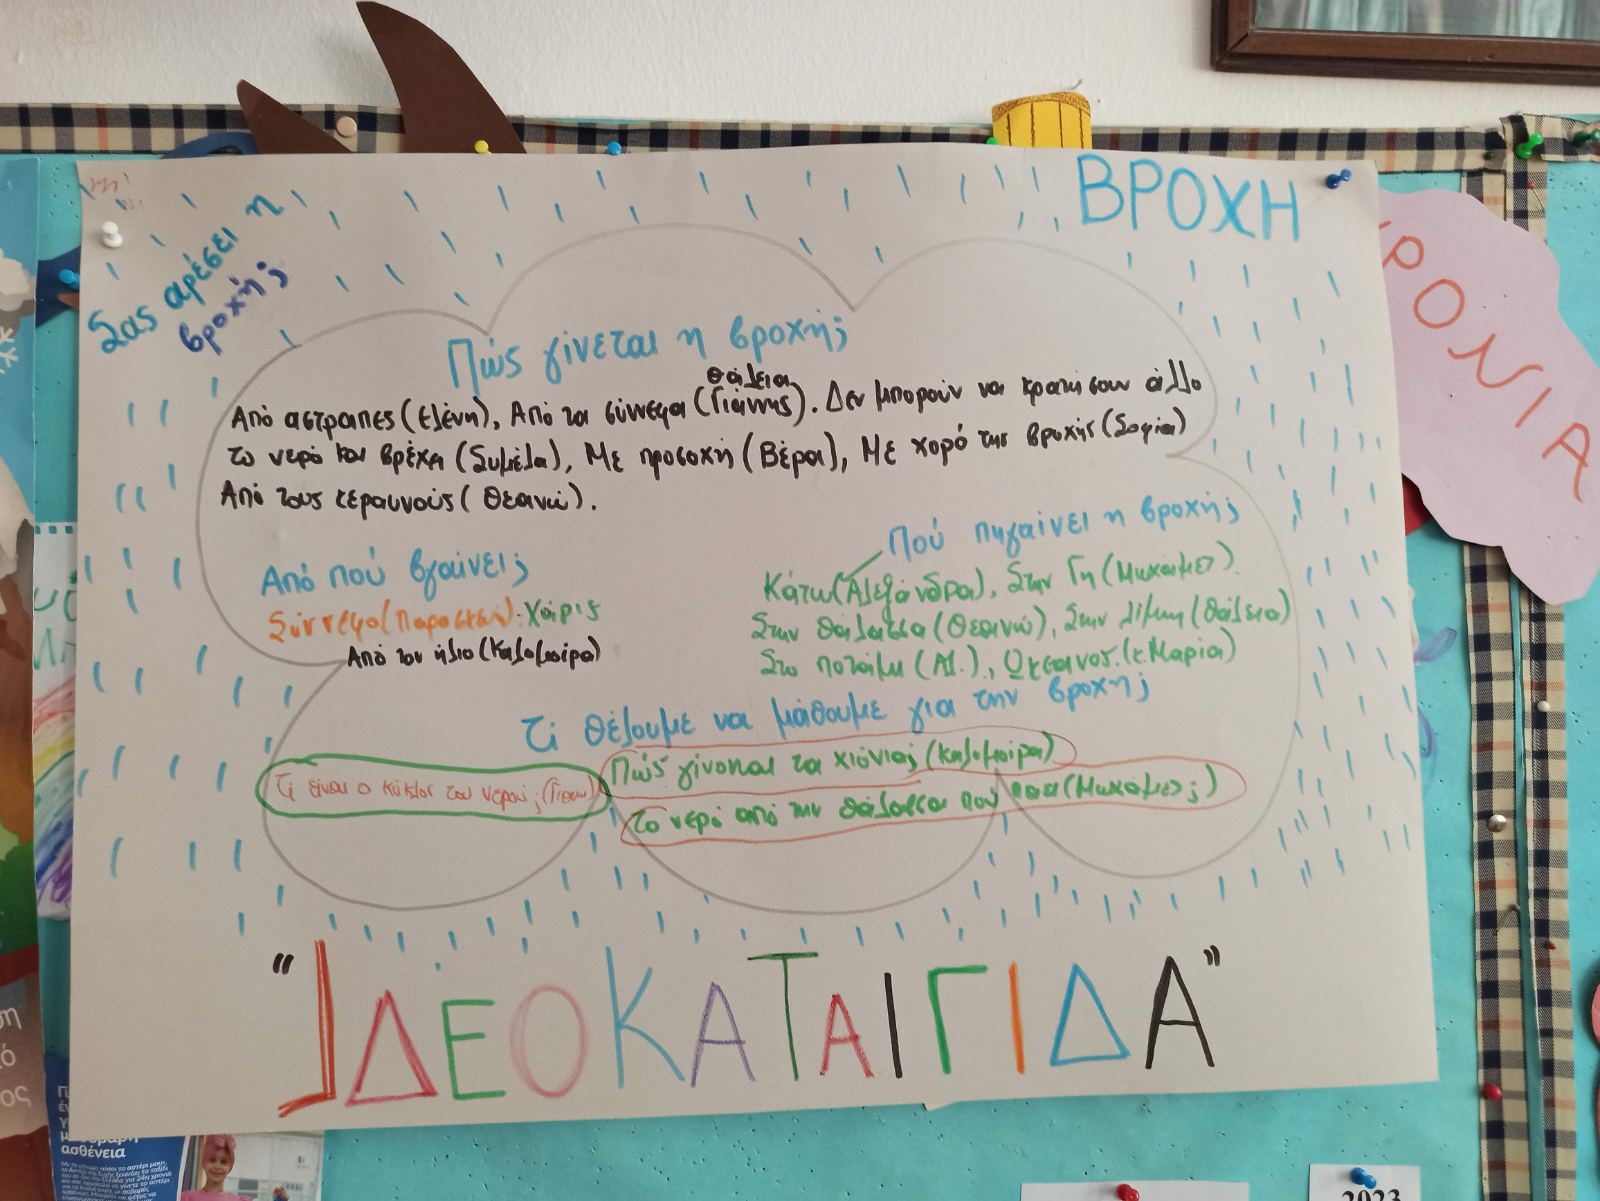 ΒΡΟΧΗ
Σας αρέσει η
βροχή;
Πώς γίνεται η βροχή;
Θάλεια
Από αστραπες (Ελένη), Από τα σύννεφα (Γιάννης). Δεν μπορούν να κρατήσουν άλλο
το νερό και βρέχει (Συμέλα), Με προσοχή (Βέρα), Με χορό της βροχής (Σοφία)
Από τους κεραυνούς (Θεανώ).
Από πού βγαίνει;
Σύννεφο (Παρασκευή). Χάρις
Από τον ήλιο (Καλομοίρα)
Πού πηγαίνει η βροχή;
Κάτω (Αλεξάνδρα), Στην Γη (Μιχαμετ).
Στην θάλασσα (Θεανώ), Στην λίμνη (Θάλεια)
Στο ποτάμι (Αλ.), Ωκεανος. (κ.Μαρία)
Τι θέλουμε να μάθουμε για την βροχή;
Τι είναι ο κύκλος του νερού; (Γιαν)
Πώς γίνονται τα χιόνια; (Καλομοίρα)
Το νερό από την θάλασσα πού πάει (Μιχαμετ;)
"ΙΔΕΟΚΑΤΑΙΓΙΔΑ"
ΡΟΝΙΑ
ασθένεια
2023